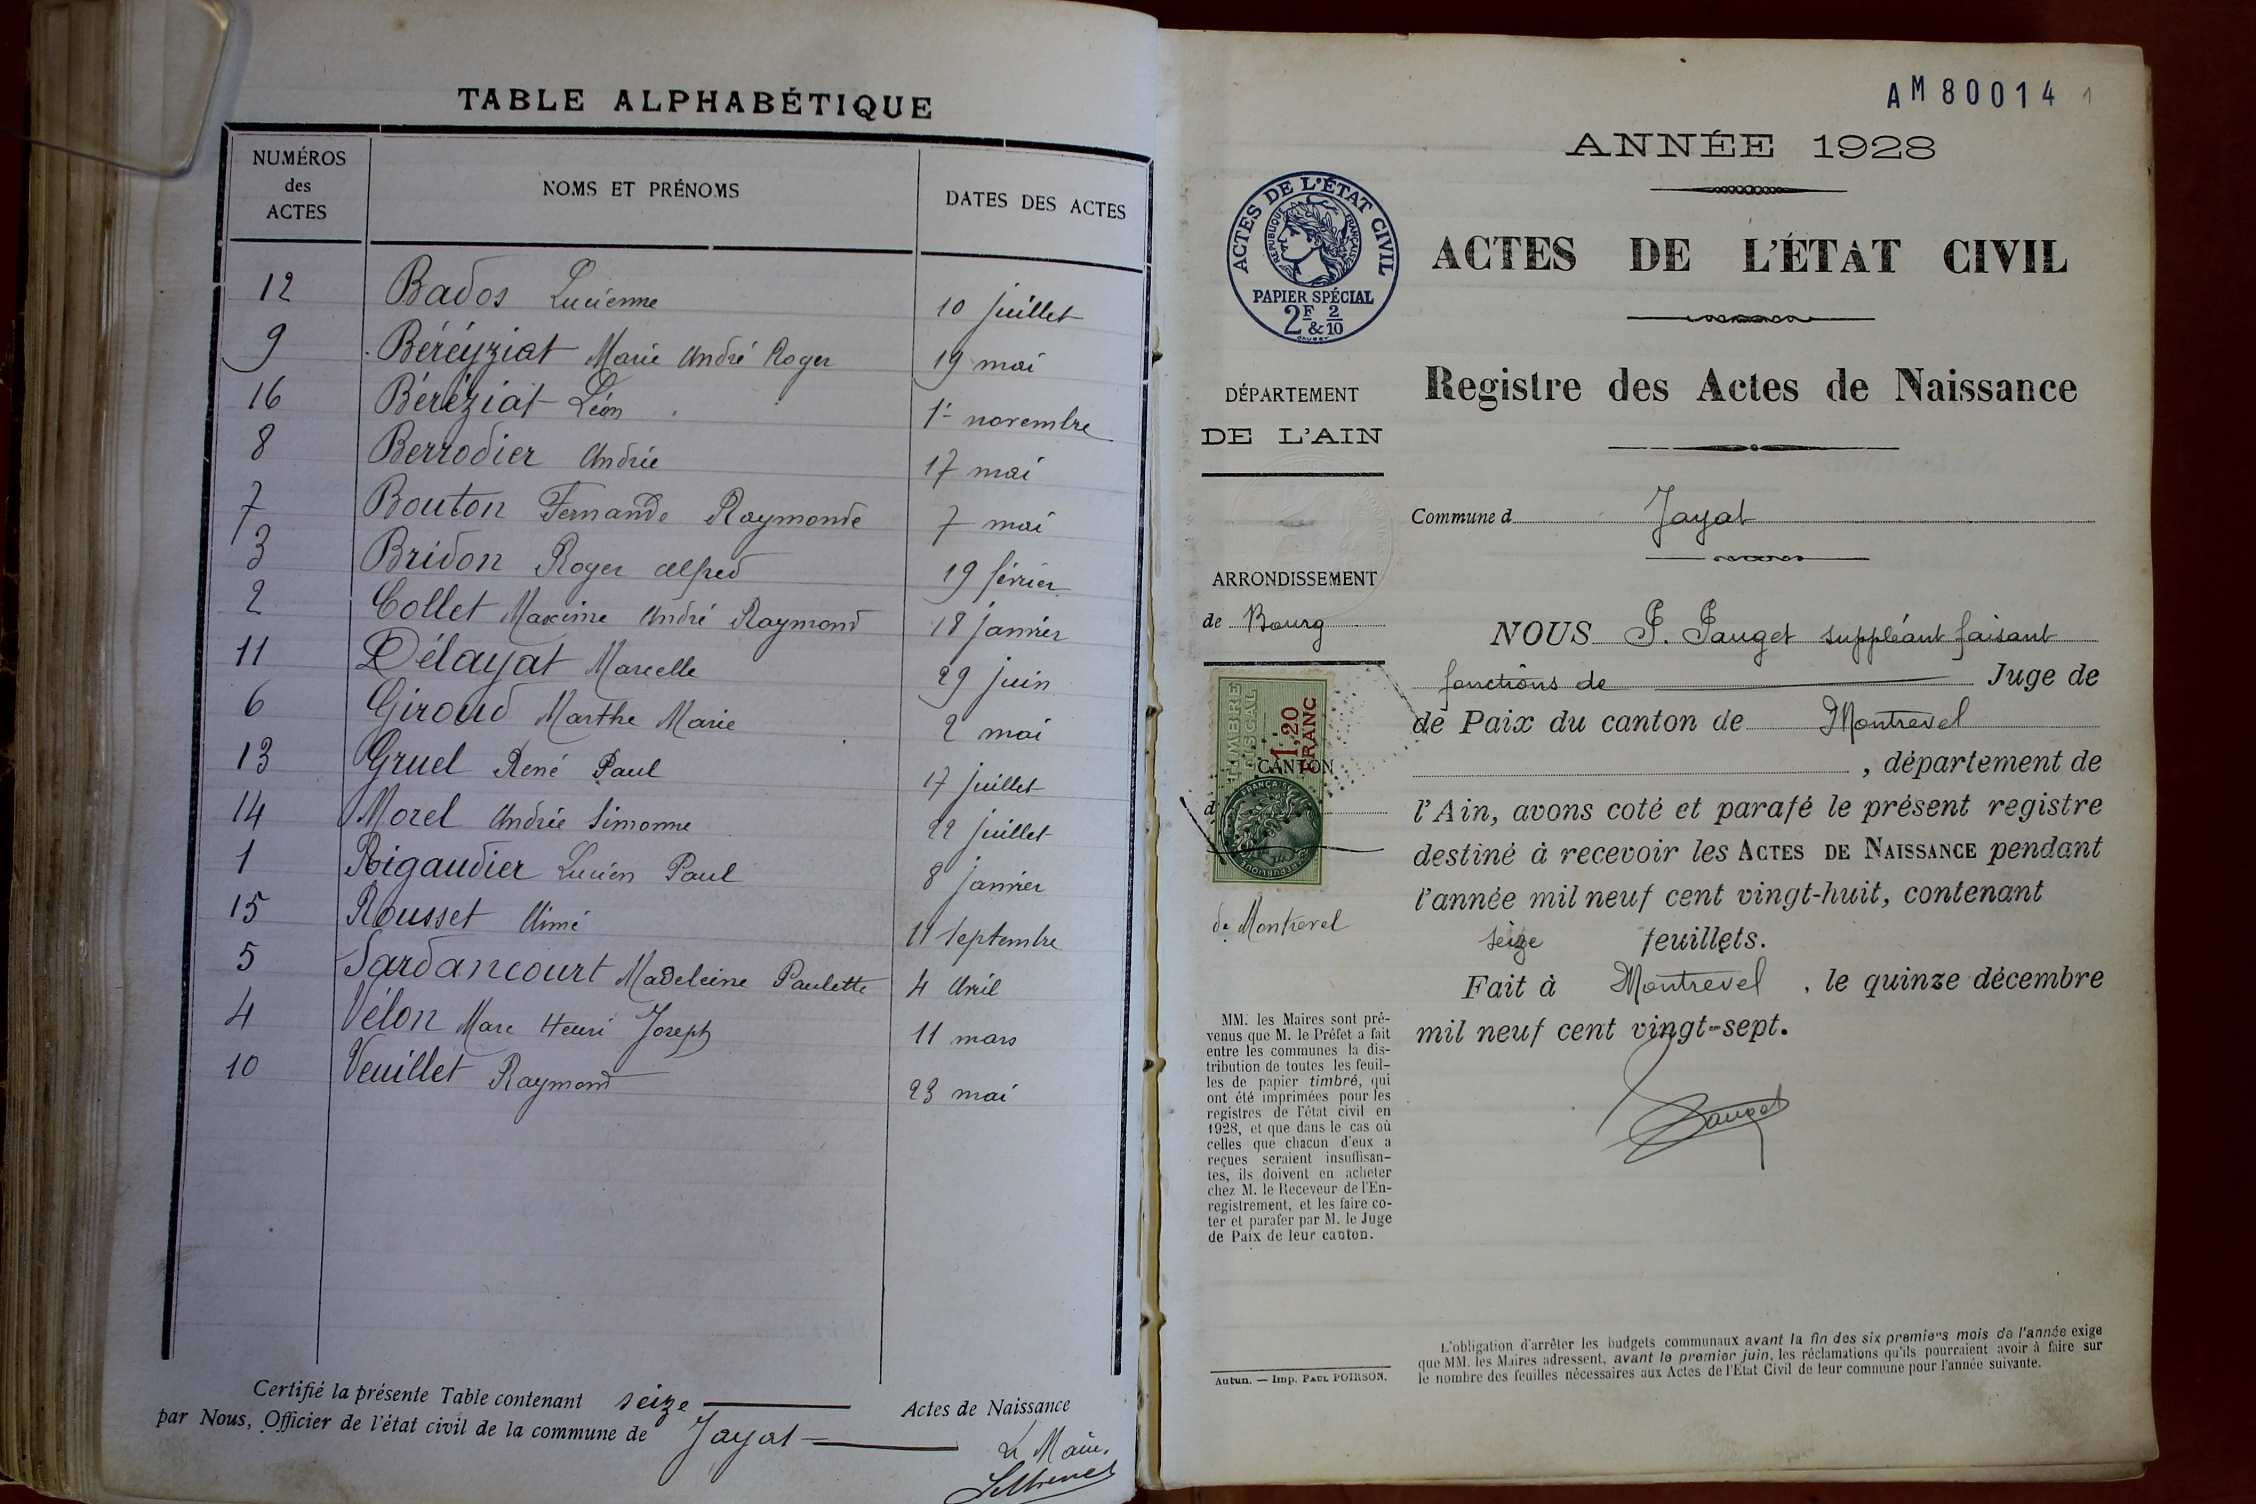 TABLE ALPHABÉTIQUE
NUMÉROS des ACTES NOMS ET PRÉNOMS DATES DES ACTES
12 Bados Lucienne 10 juillet
9 Béréyziat Marie André Roger 19 mai
16 Béréziat Léon 1er novembre
8 Berrodier Andrée 17 mai
7 Bouton Fernande Raymonde 7 mai
3 Bridon Roger Alfred 19 février
2 Collet Maxime André Raymond 18 janvier
11 Délayat Marcelle 29 juin
6 Giroud Marthe Marie 2 mai
13 Gruel René Paul 17 juillet
14 Morel Andrée Simonne 22 juillet
1 Rigaudier Lucien Paul 8 janvier
15 Rousset Aimé 11 Septembre
5 Sardancourt Madeleine Paulette 4 Avril
4 Vélon Marc Henri Joseph 11 mars
10 Veuillet Raymond 23 mai
Certifié la présente Table contenant seize Actes de Naissance
par Nous, Officier de l'état civil de la commune de Jayat
Le Maire,
AM80014 1
ANNÉE 1928
ACTES DE L'ÉTAT CIVIL
RÉPUBLIQUE FRANÇAISE
PAPIER SPÉCIAL
2F & 2/10
ACTES DE L'ÉTAT CIVIL
Registre des Actes de Naissance
DÉPARTEMENT
DE L'AIN
Commune d Jayat
ARRONDISSEMENT
de Bourg
TIMBRE FISCAL
1,20 FRANC
CANTON
d
de Montrevel
NOUS P. Pauget suppléant faisant
fonctions de Juge de
de Paix du canton de Montrevel
, département de
l'Ain, avons coté et parafé le présent registre
destiné à recevoir les ACTES DE NAISSANCE pendant
l'année mil neuf cent vingt-huit, contenant
seize feuillets.
Fait à Montrevel, le quinze décembre
mil neuf cent vingt-sept.
Pauget
MM. les Maires sont pré-
venus que M. le Préfet a fait
entre les communes la dis-
tribution de toutes les feuil-
les de papier timbré, qui
ont été imprimées pour les
registres de l'état civil en
1928, et que dans le cas où
celles que chacun d'eux a
reçues seraient insuffisan-
tes, ils doivent en acheter
chez M. le Receveur de l'En-
registrement, et les faire co-
ter et parafer par M. le Juge
de Paix de leur canton.
Autun. — Imp. PAUL POIRSON.
L'obligation d'arrêter les budgets communaux avant la fin des six premiers mois de l'année exige
que MM. les Maires adressent, avant le premier juin, les réclamations qu'ils pourraient avoir à faire sur
le nombre des feuilles nécessaires aux Actes de l'État Civil de leur commune pour l'année suivante.